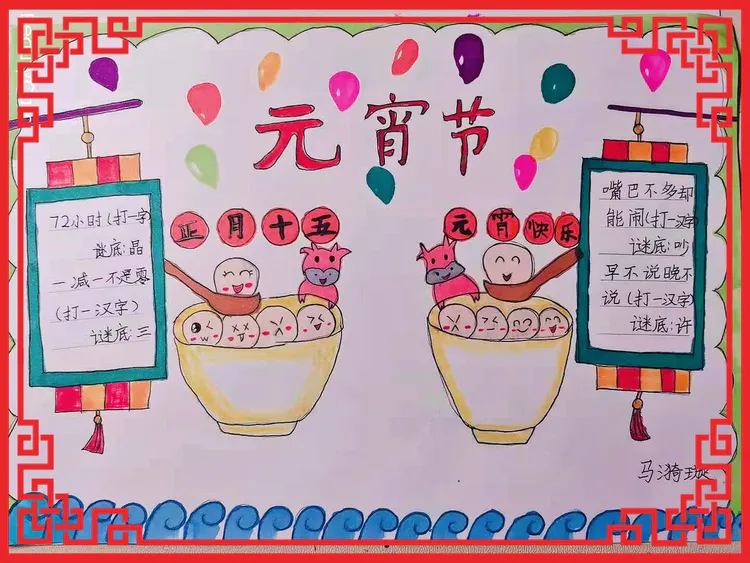 元宵节
正月十五
元宵快乐
72小时(打一字)
谜底:晶
一减一不是零
(打一汉字)
谜底:三
嘴巴不多却
能闹(打一汉字)
谜底:吵
早不说晚不
说(打一汉字)
谜底:许
马漪璇